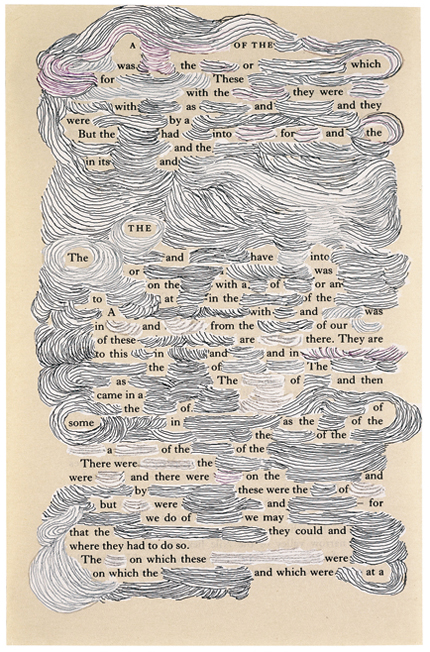 A OF THE
was the or which
for These
with the they were
with as and and they
were by a
But the had into for and the
and the
in its and
THE
The and have into
or was
on the with a of or an
to at in the of the
A with and was
in and from the of our
of these are there. They are
to this in and and in
the of The
as The of and then
came in a
the of of
some in as the of the
the of the
a of the of the
There were the
were and there were on the and
by these were the of
but were and for
we do of we may
that the they could and
where they had to do so.
The on which these were
on which the and which were at a